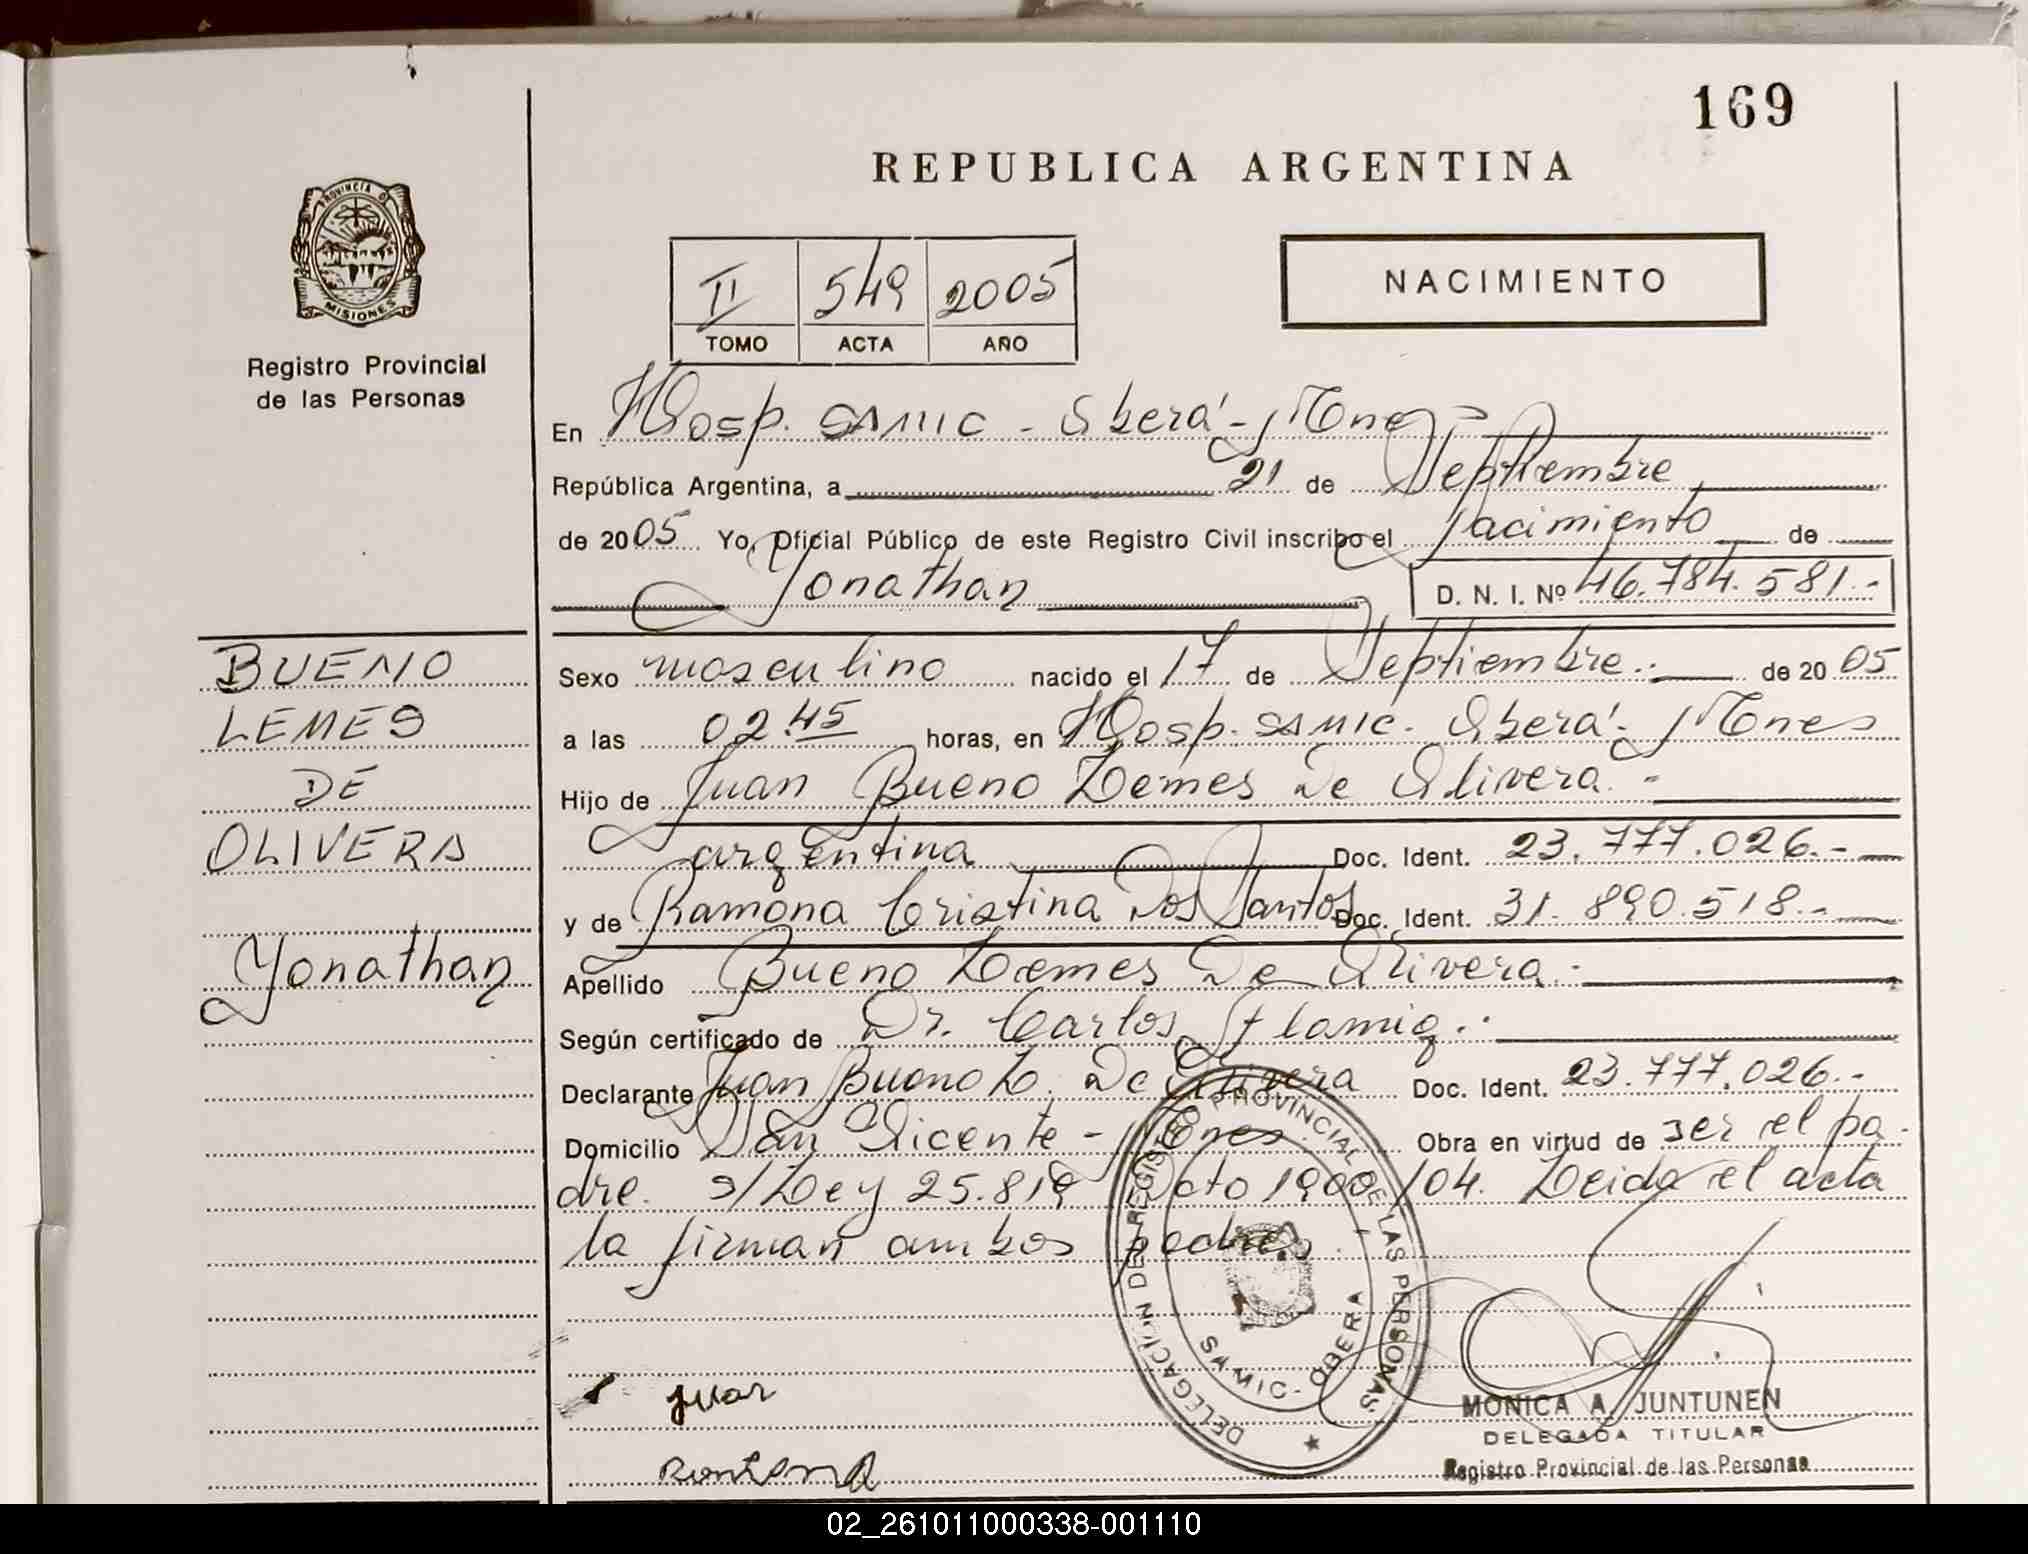 169
REPUBLICA ARGENTINA
PROVINCIA DE
MISIONES
Registro Provincial
de las Personas
II 549 2005
TOMO ACTA AÑO
NACIMIENTO
En Hosp. SAMIC - Oberá - Mnes
República Argentina, a 21 de Septiembre
de 2005 Yo, Oficial Público de este Registro Civil inscribo el Nacimiento de
Yonathan D. N. I. Nº 46.784.581.-
BUENO
LEMES
DE
OLIVERA
Yonathan
Sexo masculino nacido el 17 de Septiembre.- de 2005
a las 02.45 horas, en Hosp. SAMIC. Oberá - Mnes
Hijo de Juan Bueno Lemes De Olivera.-
argentina Doc. Ident. 23.777.026.-
y de Ramona Cristina Dos Santos Doc. Ident. 31.890.518.-
Apellido Bueno Lemes De Olivera.-
Según certificado de Dr. Carlos
Declarante Juan Bueno L. De Olivera Doc. Ident. 23.777.026.-
Domicilio San Vicente - Mnes. Obra en virtud de ser el pa-
dre. s/Ley 25.819 Dcto 1900/04. Leida el acta
la firman ambos padres.
DELEGACION DEL REGISTRO PROVINCIAL DE LAS PERSONAS
SAMIC - OBERA
Juan
MONICA A. JUNTUNEN
DELEGADA TITULAR
Registro Provincial de las Personas
02_261011000338-001110